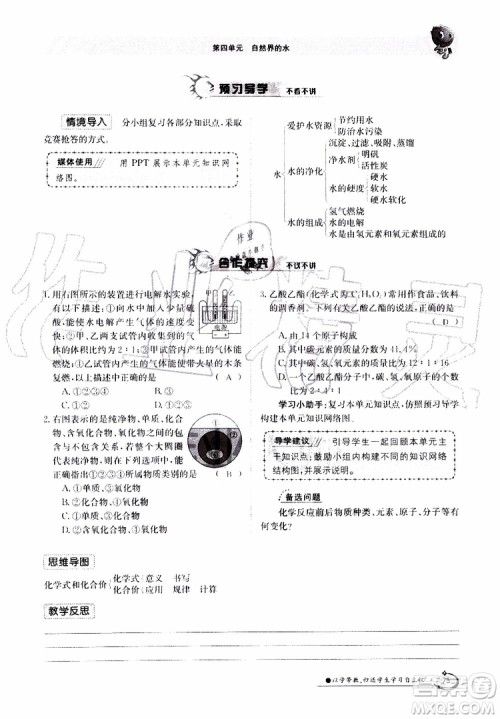 第四单元 自然界的水
预习导学 不看不讲
情境导入 分小组复习各部分知识点,采取
竞赛抢答的方式。
媒体使用 用 PPT 展示本单元知识网
络图。
水
爱护水资源
节约用水
防治水污染
水的净化
沉淀、过滤、吸附、蒸馏
净水剂
明矾
活性炭
水的硬度
硬水
硬水软化
水的组成
氢气燃烧
水的电解
水是由氢元素和氧元素组成
合作探究 不议不讲
1. 用右图所示的装置进行电解水实验,
有以下描述:①向水中加入少量
硫酸,使水电解产生气体的速度变
快;②甲、乙两支试管内气体的体积
比大约为 2∶1;③甲试管内气体能
燃烧;④乙试管内气体能使带火星的木条
复燃。以上描述正确的是 ( A )
A. ①②③④ B. ①②③
C. ①②④ D. ②③④
电源
2. 右图表示的是纯净物、单质、化合物、
含氧化合物、氧化物之间的包含与不
包含关系,若整个大圆圈代表纯净
物,则①②所属物质类别是 ( C )
A. ①单质、③氧化物
B. ①化合物、③氧化物
C. ①单质、②化合物
D. ②含氧化合物、③氧化物
①
②
③
④
3. 乙酸乙酯(化学式为 C₄H₈O₂)常用作食品、饮料
的调香剂。下列有关乙酸乙酯的说法正确的是
( D )
A. 由 14 个原子构成
B. 其中碳元素的质量分数为 41.4%
C. 碳、氢、氧三种元素的质量比为 12∶1∶16
D. 一个乙酸乙酯分子中,碳、氢、氧原子个数比
为 2∶4∶1
学习小助手:复习本单元知识点,仿照预习导学
构建本单元知识网络图。
导学建议 引导学生一起回顾本单元主
干知识点;鼓励小组内构建不同的知识网络
结构图,并进行交流。
备选问题
化学反应前后物质种类、元素、原子、分子等有
何变化?
思维导图
化学式和化合价
化学式 意义 书写
化合价 应用 规律 计算
教学反思